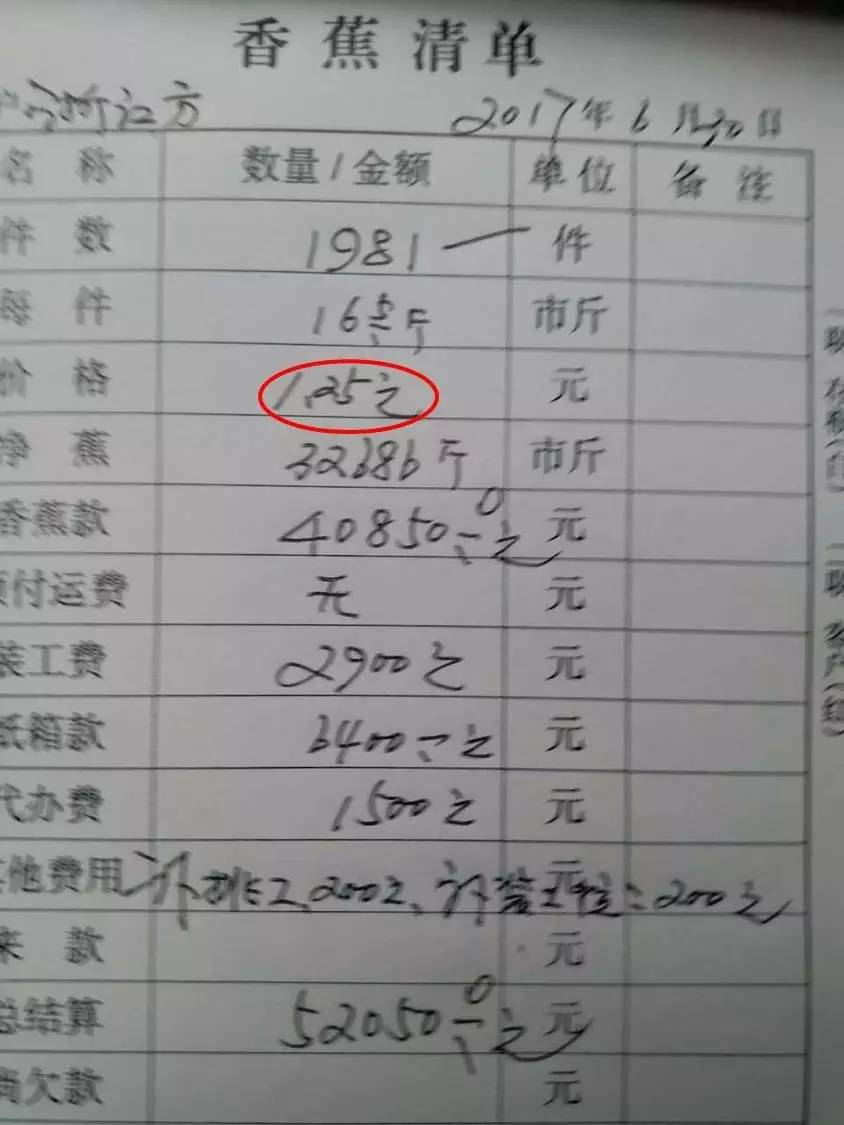 香蕉清单
2017年6月30日
名 称 数量/金额 单位 备注
件 数 1981 件
每 件 16 斤 市斤
价 格 1.25元 元
净 蕉 32686斤 市斤
香蕉款 40850 元 元
预付运费 无 元
装工费 2900元 元
纸箱款 6400 元 元
代办费 1500元 元
其他费用 补 工200元、补 200元 元
来 款 元
总结算 52050 元 元
尚欠款 元